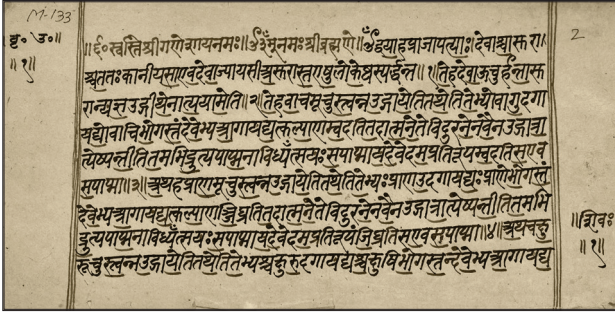 M-133
बृ॰ उ॰॥
॥१॥
2
॥६॰स्वस्तिश्रीगणेशायनमः॥ॐनमःश्रीब्रह्मणे॥ॐद्वयाहप्राजापत्याः॥देवाश्चासुरा
श्चततःकानीयसाएवदेवाज्यायसीश्चसुरास्तएषुलोकेष्वस्पर्द्धन्त॥१॥तेहदेवाऊचुर्हन्तासु
रान्यज्ञउद्गीथेनात्ययामेति॥२॥तेहवाचमूचुस्त्वन्नउद्गायेतितथेतितेभ्योवागुदगा
यद्योवाचिभोगस्तंदेवेभ्यआगायद्यत्कल्याणम्वदतितदात्मनेतेविदुरनेनवैनउद्गात्रा
त्येष्यन्तीतितमभिद्रुत्यपाप्मनाविध्यँत्सयःसपाप्मायदेवेदमप्रतिरूपम्वदतिसएव
सपाप्मा॥३॥अथहप्राणमूचुस्त्वन्नउद्गायेतितथेतितेभ्यःप्राणउदगायद्यःप्राणेभोगस्तं
देवेभ्यआगायद्यत्कल्याणञ्जिघ्रतितदात्मनेतेविदुरनेनवैनउद्गात्रात्येष्यन्तीतितमभि
द्रुत्यपाप्मनाविध्यँत्सयःसपाप्मायदेवेदमप्रतिरूपंजिघ्रतिसएवसपाप्मा॥४॥अथचक्षु
रूचुस्त्वन्नउद्गायेतितथेतितेभ्यश्चक्षुरुदगायद्यश्चक्षुषिभोगस्तन्देवेभ्यआगायद्य
॥शिवः
॥१॥